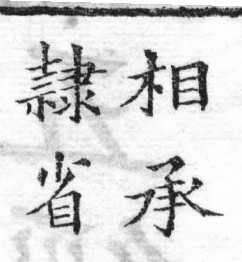 相承
隷省